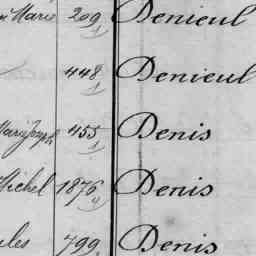 Marie 209 1 Denieul
448 1 Denieul
Marie Joseph 455 1 Denis
Michel 1876 4 Denis
ules 799 Denis